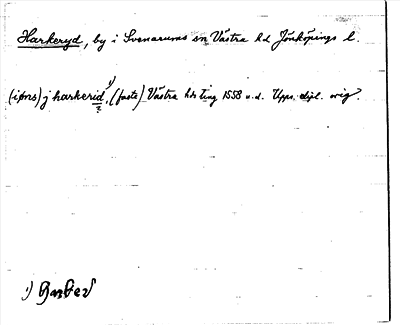 Harkeryd, by i Svenarums sn Västra hd Jönköpings l.
(ipns) j harkerid, 1) (faste) Västra hds ting 1558 u.d. Upps. dipl. orig.
?
1)